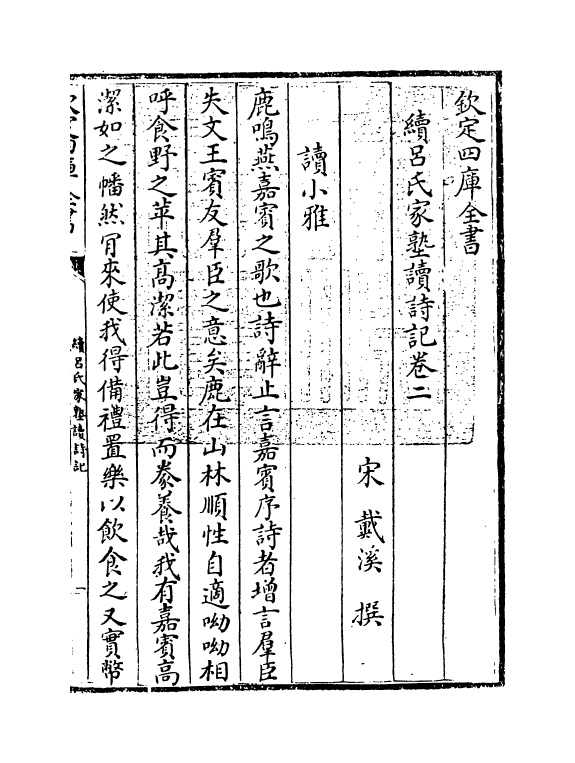 欽定四庫全書
續呂氏家塾讀詩記卷二
宋 戴溪 撰
讀小雅
鹿鳴燕嘉賓之歌也詩辭止言嘉賓序詩者增言羣臣
失文王賓友羣臣之意矣鹿在山林順性自適呦呦相
呼食野之苹其髙潔若此豈得而豢養哉我有嘉賓高
潔如之幡然肎來使我得備禮置樂以飲食之又實幣
續呂氏家塾讀詩記